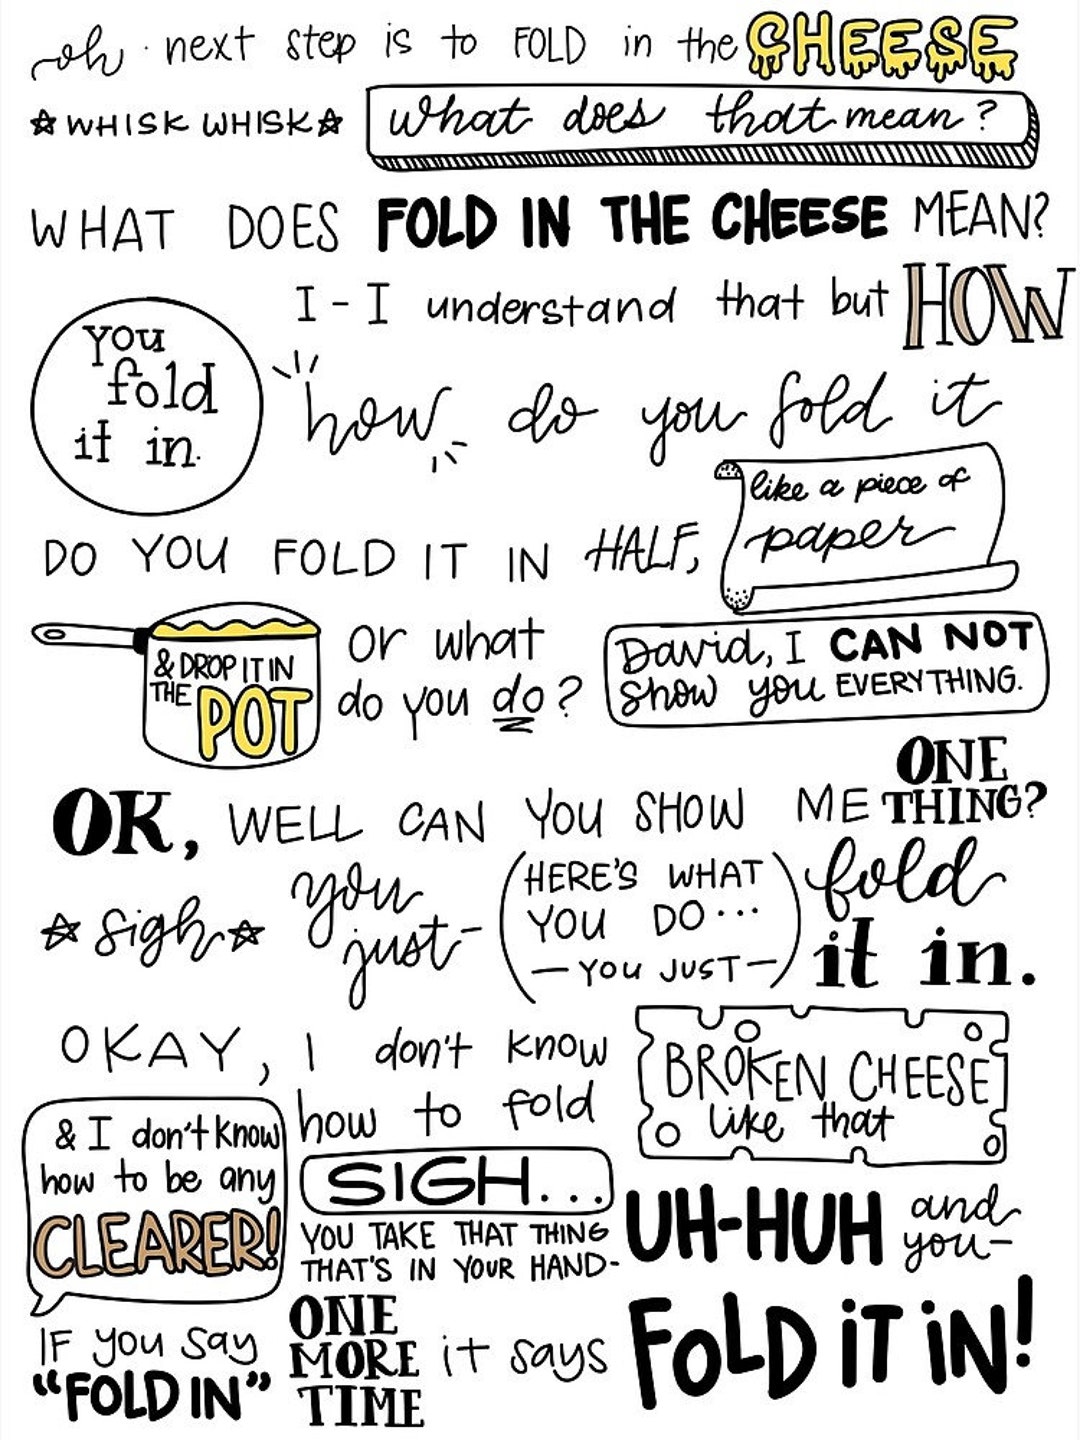 oh next step is to FOLD in the CHEESE
☆ WHISK WHISK ☆ what does that mean?
WHAT DOES FOLD IN THE CHEESE MEAN?
you
fold
it in.
I-I understand that but HOW
how do you fold it
DO YOU FOLD IT IN HALF,
like a piece of
paper
& DROP IT IN
THE POT
or what
do you do?
David, I CAN NOT
show you EVERYTHING.
OK, WELL CAN YOU SHOW ME ONE
THING?
☆ sigh ☆
you
just-
(HERE'S WHAT
YOU DO...
- YOU JUST -)
fold
it in.
OKAY, I don't know
how to fold
BROKEN CHEESE
like that
& I don't know
how to be any
CLEARER!
SIGH...
YOU TAKE THAT THING
THAT'S IN YOUR HAND-
UH-HUH and
you-
IF you say
"FOLD IN"
ONE
MORE
TIME
it says
FOLD iT iN!